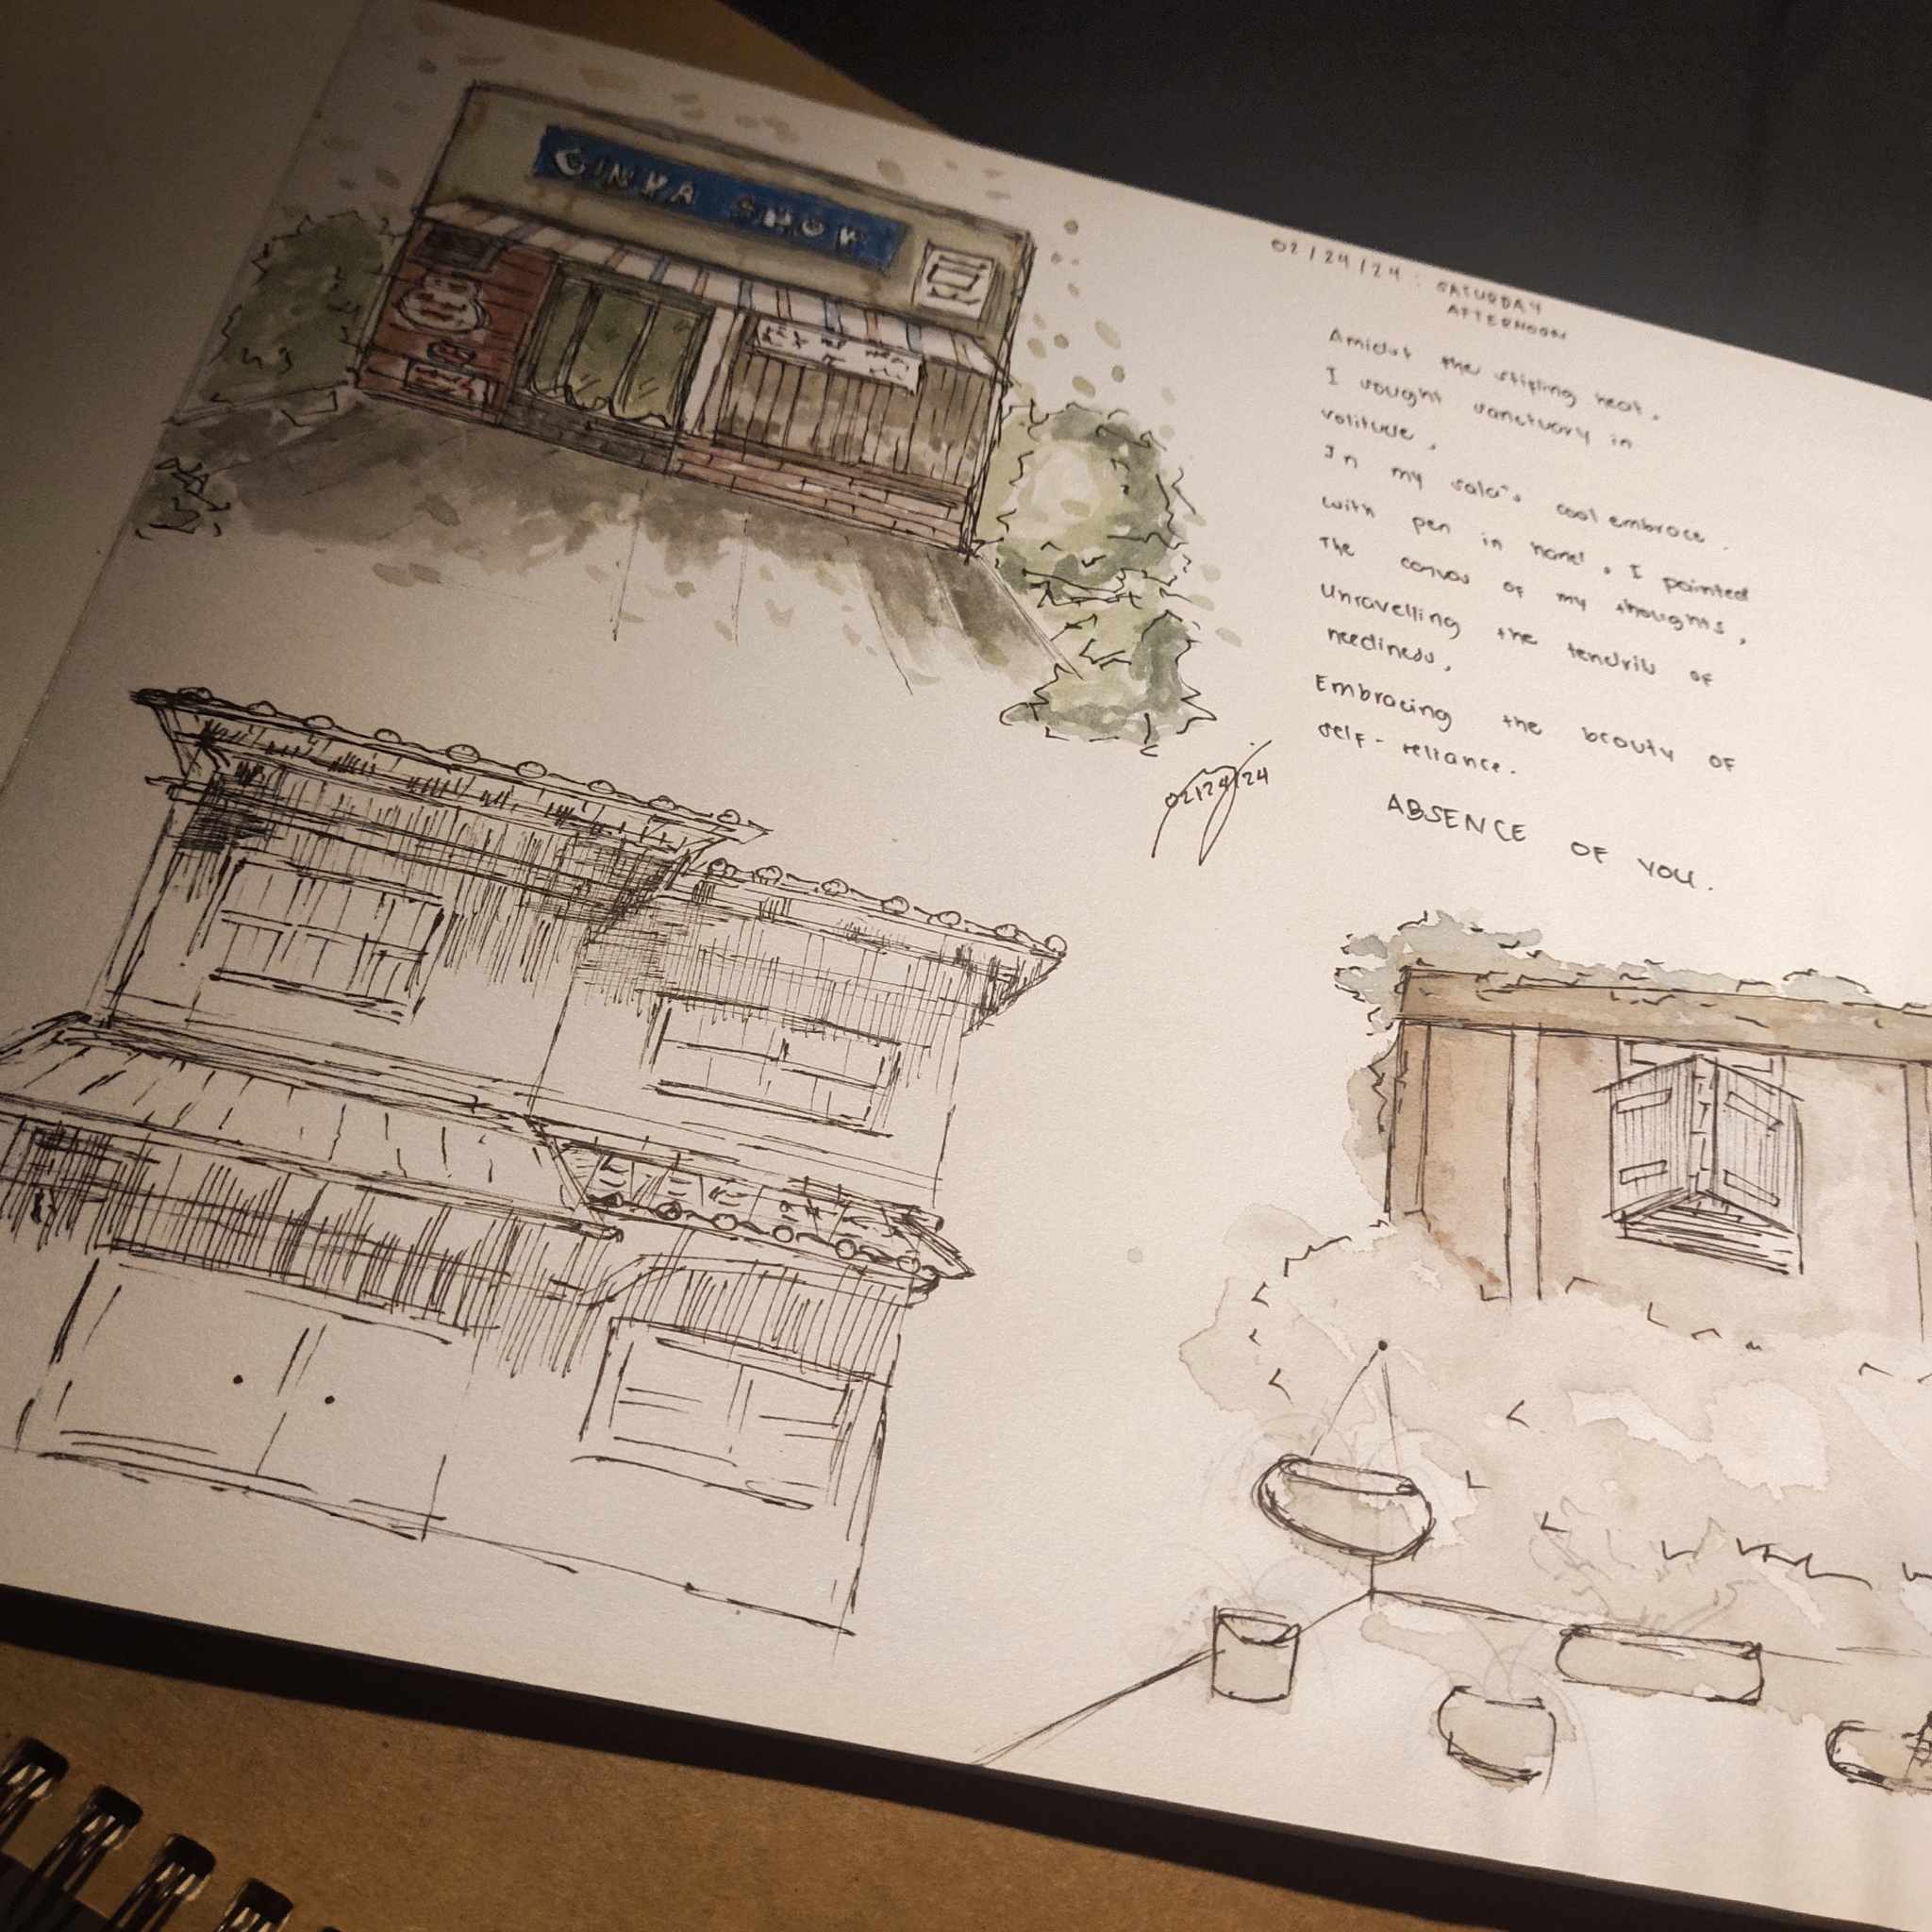 GINKA SHOW
02/24/24 : SATURDAY
AFTERNOON
Amidst the stifling heat,
I sought sanctuary in
solitude,
In my sala's cool embrace.
with pen in hand, I painted
The canvas of my thoughts,
Unravelling the tendrils of
neediness,
Embracing the beauty of
self-reliance.
ABSENCE OF YOU.
02/24/24